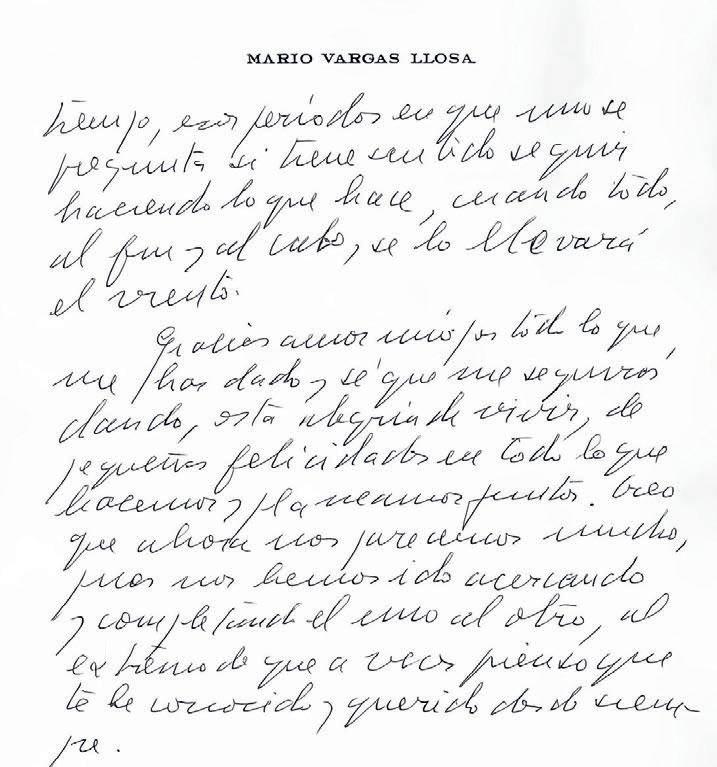 MARIO VARGAS LLOSA
tiempo, esos períodos en que uno se
pregunta si tiene sentido seguir
haciendo lo que hace, cuando todo,
al fin y al cabo, se lo llevará
el viento.
Gracias amor mío por todo lo que
me has dado y sé que me seguirás
dando, esta alegría de vivir, de
pequeñas felicidades en todo lo que
hacemos y planeamos juntos. Creo
que ahora nos parecemos mucho,
pues nos hemos ido acercando
y completando el uno al otro, al
extremo de que a veces pienso que
te he conocido y querido desde siem-
pre.